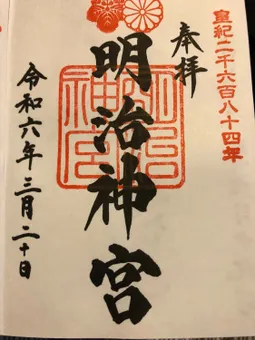 皇紀二千六百八十四年
奉拝
明治神宮
令和六年三月二十日
明治神宮